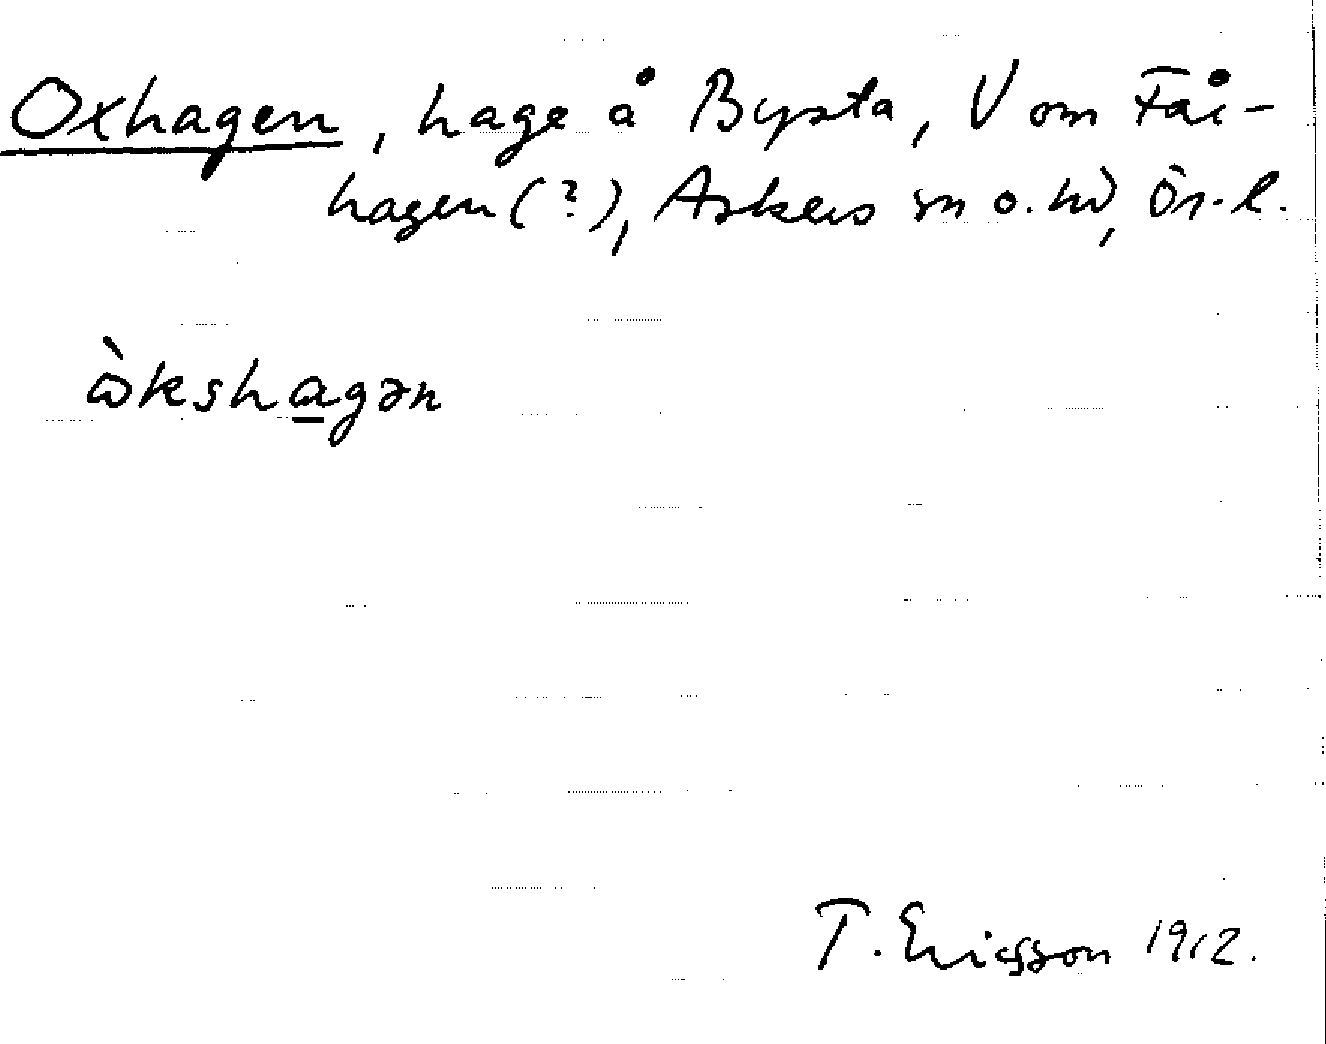 Oxhagen, hage å Bysta, V om Får-
hagen (?), Askers sn o. hd, Ör. l.
ὼkshagən
T. Ericsson 1912.